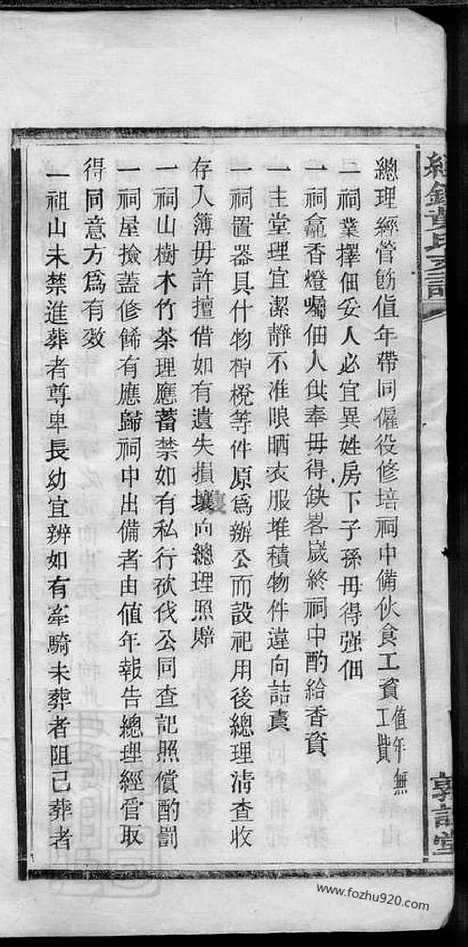 總理經管飭值年帶同僱役修培祠中備伙食工資值年無工貲
一祠業擇佃妥人必宜異姓房下子孫毋得强佃
一祠龕香燈囑佃人供奉毋得缺畧歲終祠中酌給香資
一主堂理宜潔靜不准晾晒衣服堆積物件違向詰責
一祠置器具什物棹櫈等件原爲辦公而設祀用後總理淸查收
存入簿毋許擅借如有遺失損壞向總理照賠
一祠山樹木竹茶理應蓄禁如有私行砍伐公同查記照償酌罰
一祠屋撿蓋修餙有應歸祠中出備者由值年報告總理經管取
得同意方爲有效
一祖山未禁進葬者尊卑長幼宜辨如有牽騎未葬者阻已葬者
支譜
堂
www.fozhu920.com